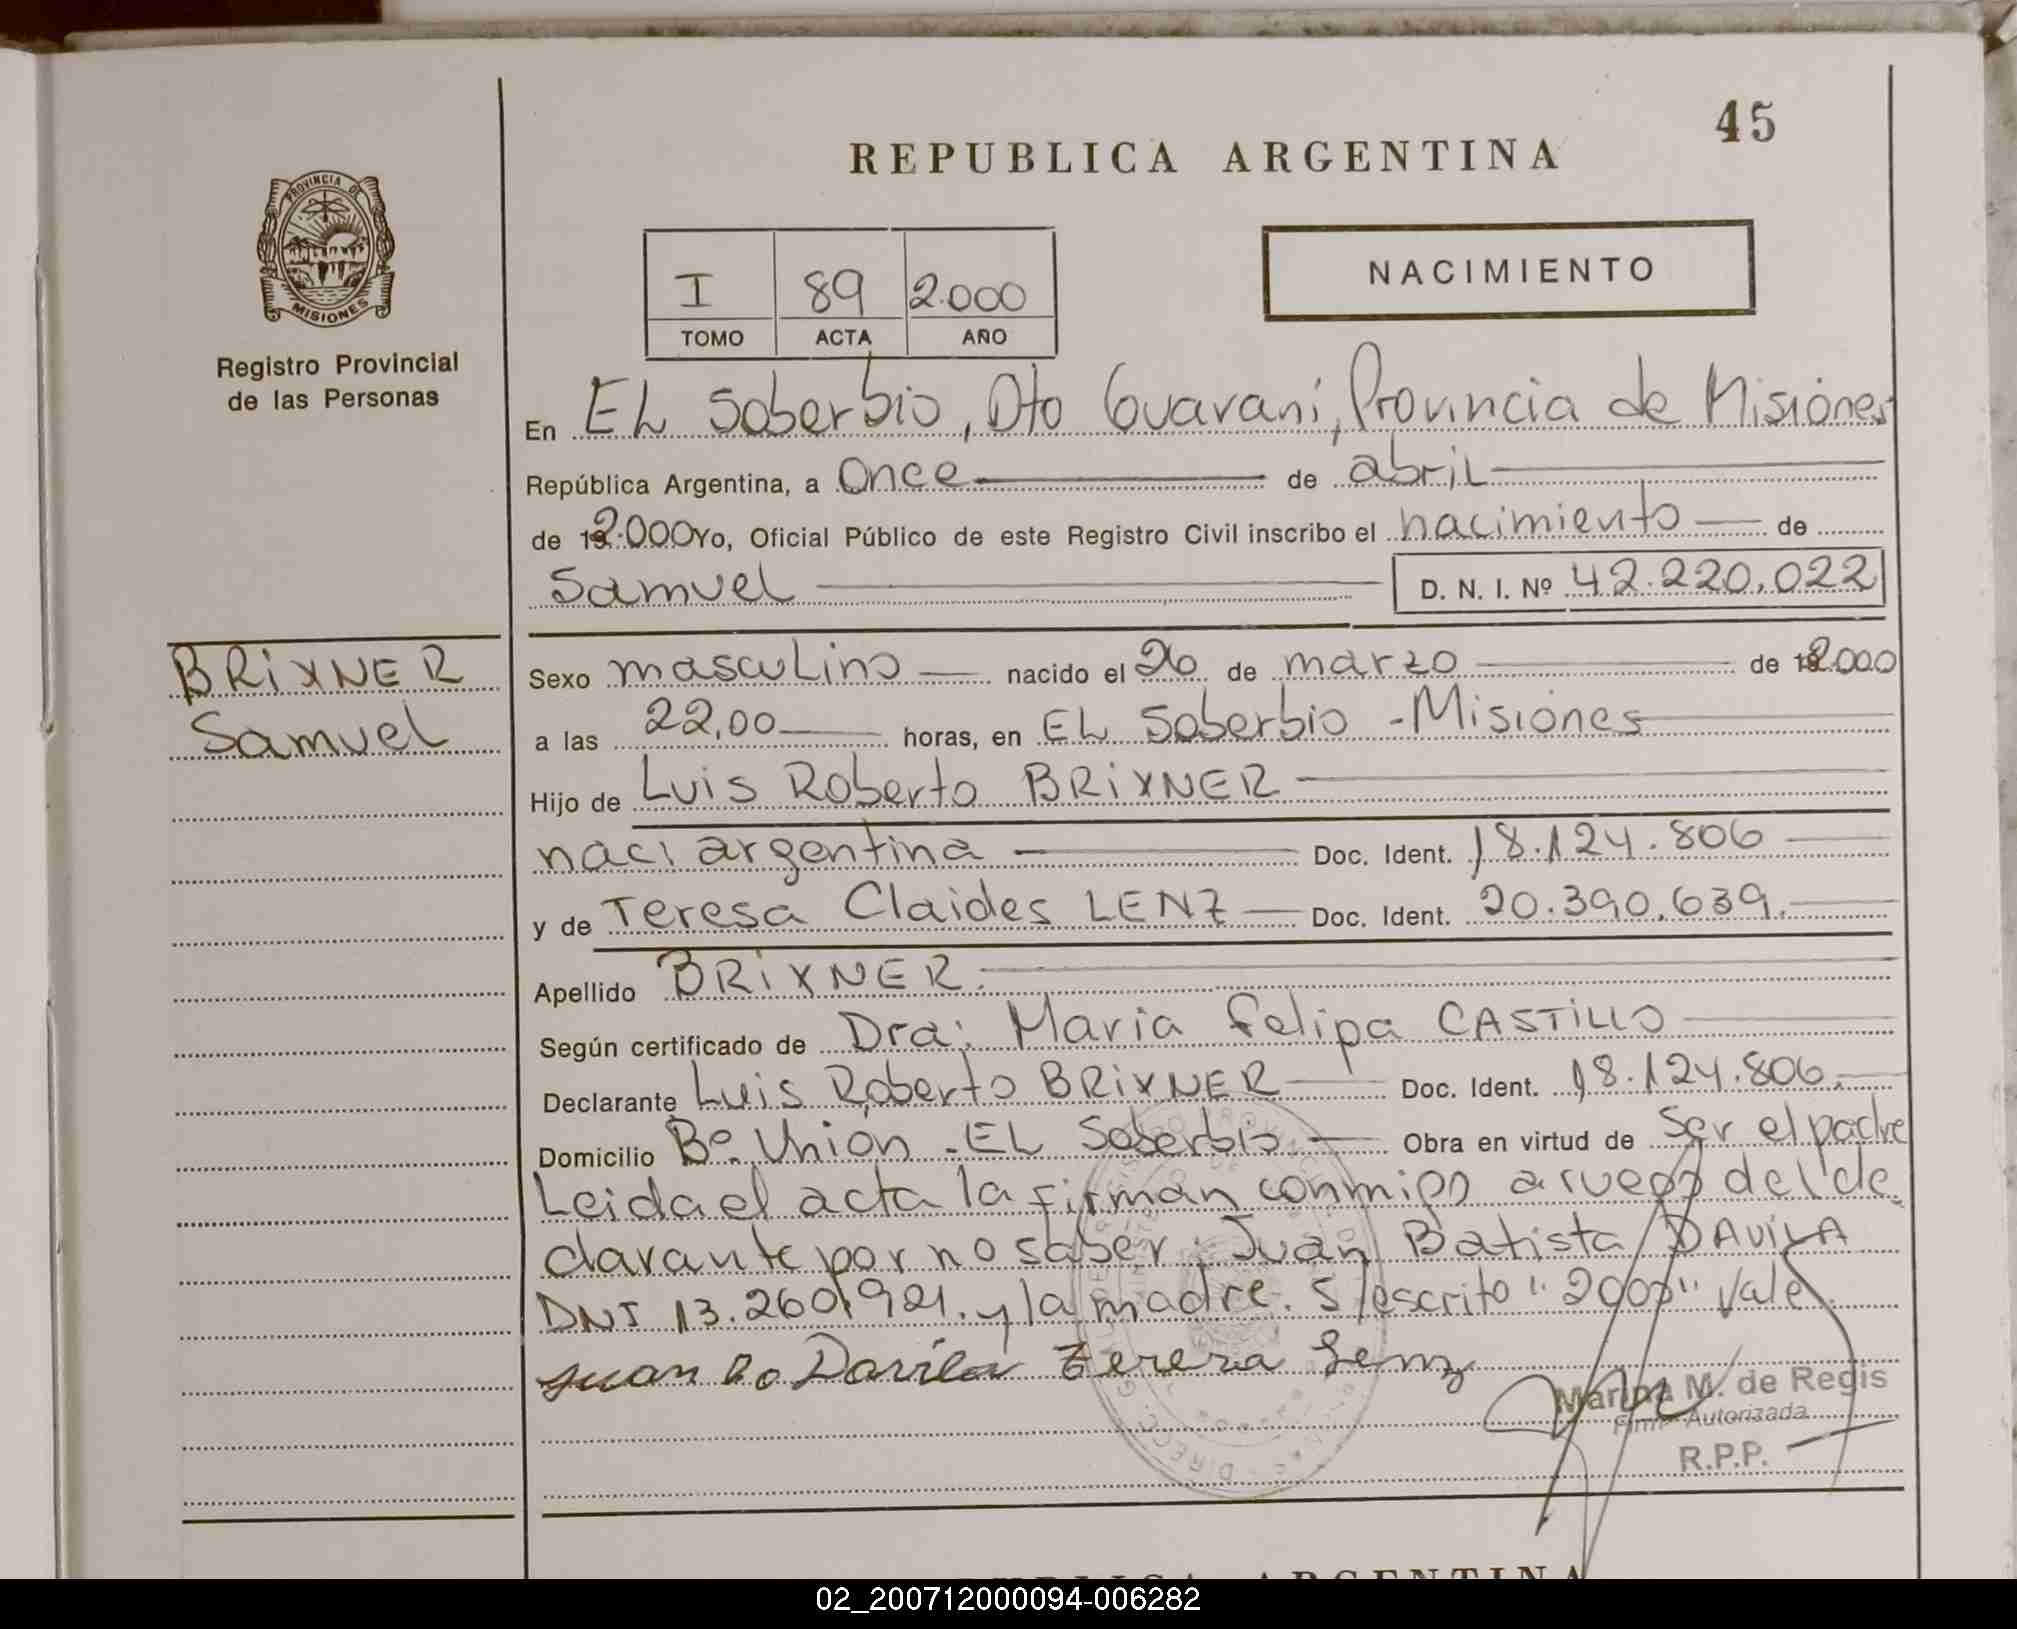 45
REPUBLICA ARGENTINA
PROVINCIA DE
MISIONES
Registro Provincial
de las Personas
I 89 2.000
TOMO ACTA AÑO
NACIMIENTO
En EL Soberbio, Dto Guaraní, Provincia de Misiones
República Argentina, a Once de abril
de 2.000 Yo, Oficial Público de este Registro Civil inscribo el nacimiento de
Samuel D. N. I. Nº 42.220.022
BRIXNER
Samuel
Sexo masculino nacido el 26 de marzo de 2.000
a las 22,00 horas, en EL Soberbio - Misiones
Hijo de Luis Roberto BRIXNER
naci argentina Doc. Ident. 18.124.806
y de Teresa Claides LENZ Doc. Ident. 20.390.639.
Apellido BRIXNER.
Según certificado de Dra: Maria Felipa CASTILLO
Declarante Luis Roberto BRIXNER Doc. Ident. 18.124.806.
Domicilio Bº Unión - EL Soberbio Obra en virtud de Ser el padre
Leida el acta la firman conmigo a ruego del de
clarante por no saber: Juan Batista DAVILA
DNI 13.260.921. y la madre. S/escrito "2000" Vale
Juan Bo Davila Tereza Lenz
Marina M. de Regis
Firma Autorizada
R.P.P.
REPUBLICA ARGENTINA
02_200712000094-006282